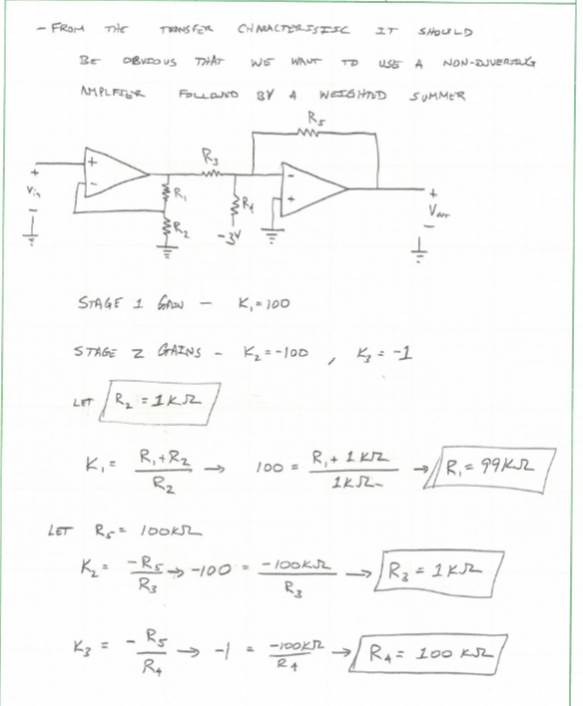 - FROM THE TRANSFER CHARACTERISTIC IT SHOULD
BE OBVIOUS THAT WE WANT TO USE A NON-INVERTING
AMPLIFIER FOLLOWED BY A WEIGHTED SUMMER
R5
R3
+
-
+
Vin
-
R1
R2
R4
-3V
-
+
+
Vout
-
STAGE 1 GAIN - K1=100
STAGE 2 GAINS - K2=-100 , K3 = -1
LET R2 = 1KΩ
K1 = (R1+R2)/R2 → 100 = (R1 + 1KΩ)/1KΩ → R1 = 99KΩ
LET R5 = 100KΩ
K2 = -R5/R3 → -100 = -100KΩ/R3 → R3 = 1KΩ
K3 = -R5/R4 → -1 = -100KΩ/R4 → R4 = 100 KΩ